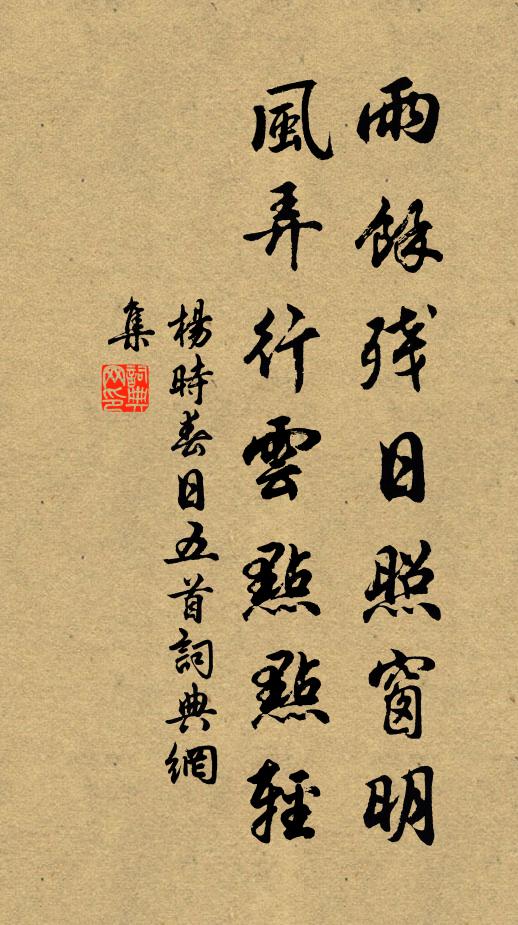 雨餘残日照窗明
風弄行雲點點輕
楊時春日五首詞典網
集
詞典
网印